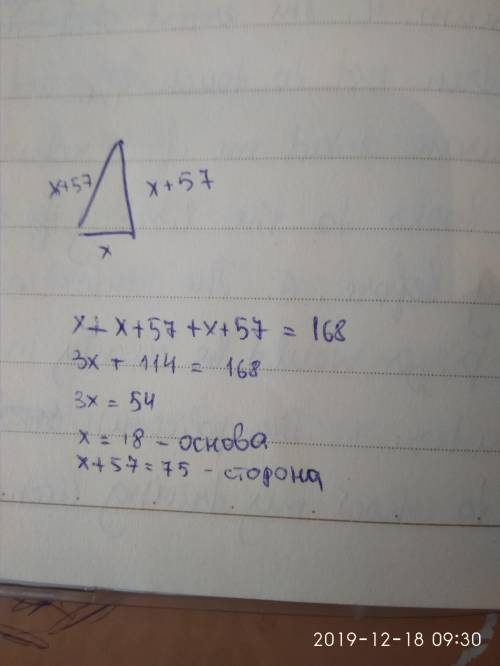 x+57
x+57
x
x + x+57 +x+57 = 168
3x + 114 = 168
3x = 54
x = 18 - основа
x+57=75 - сторона
2019-12-18 09:30